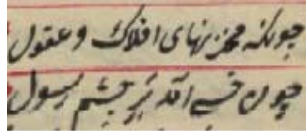 چونکه مخزنهای افلاک و عقول
چون خسے آمد بر چشم رسول